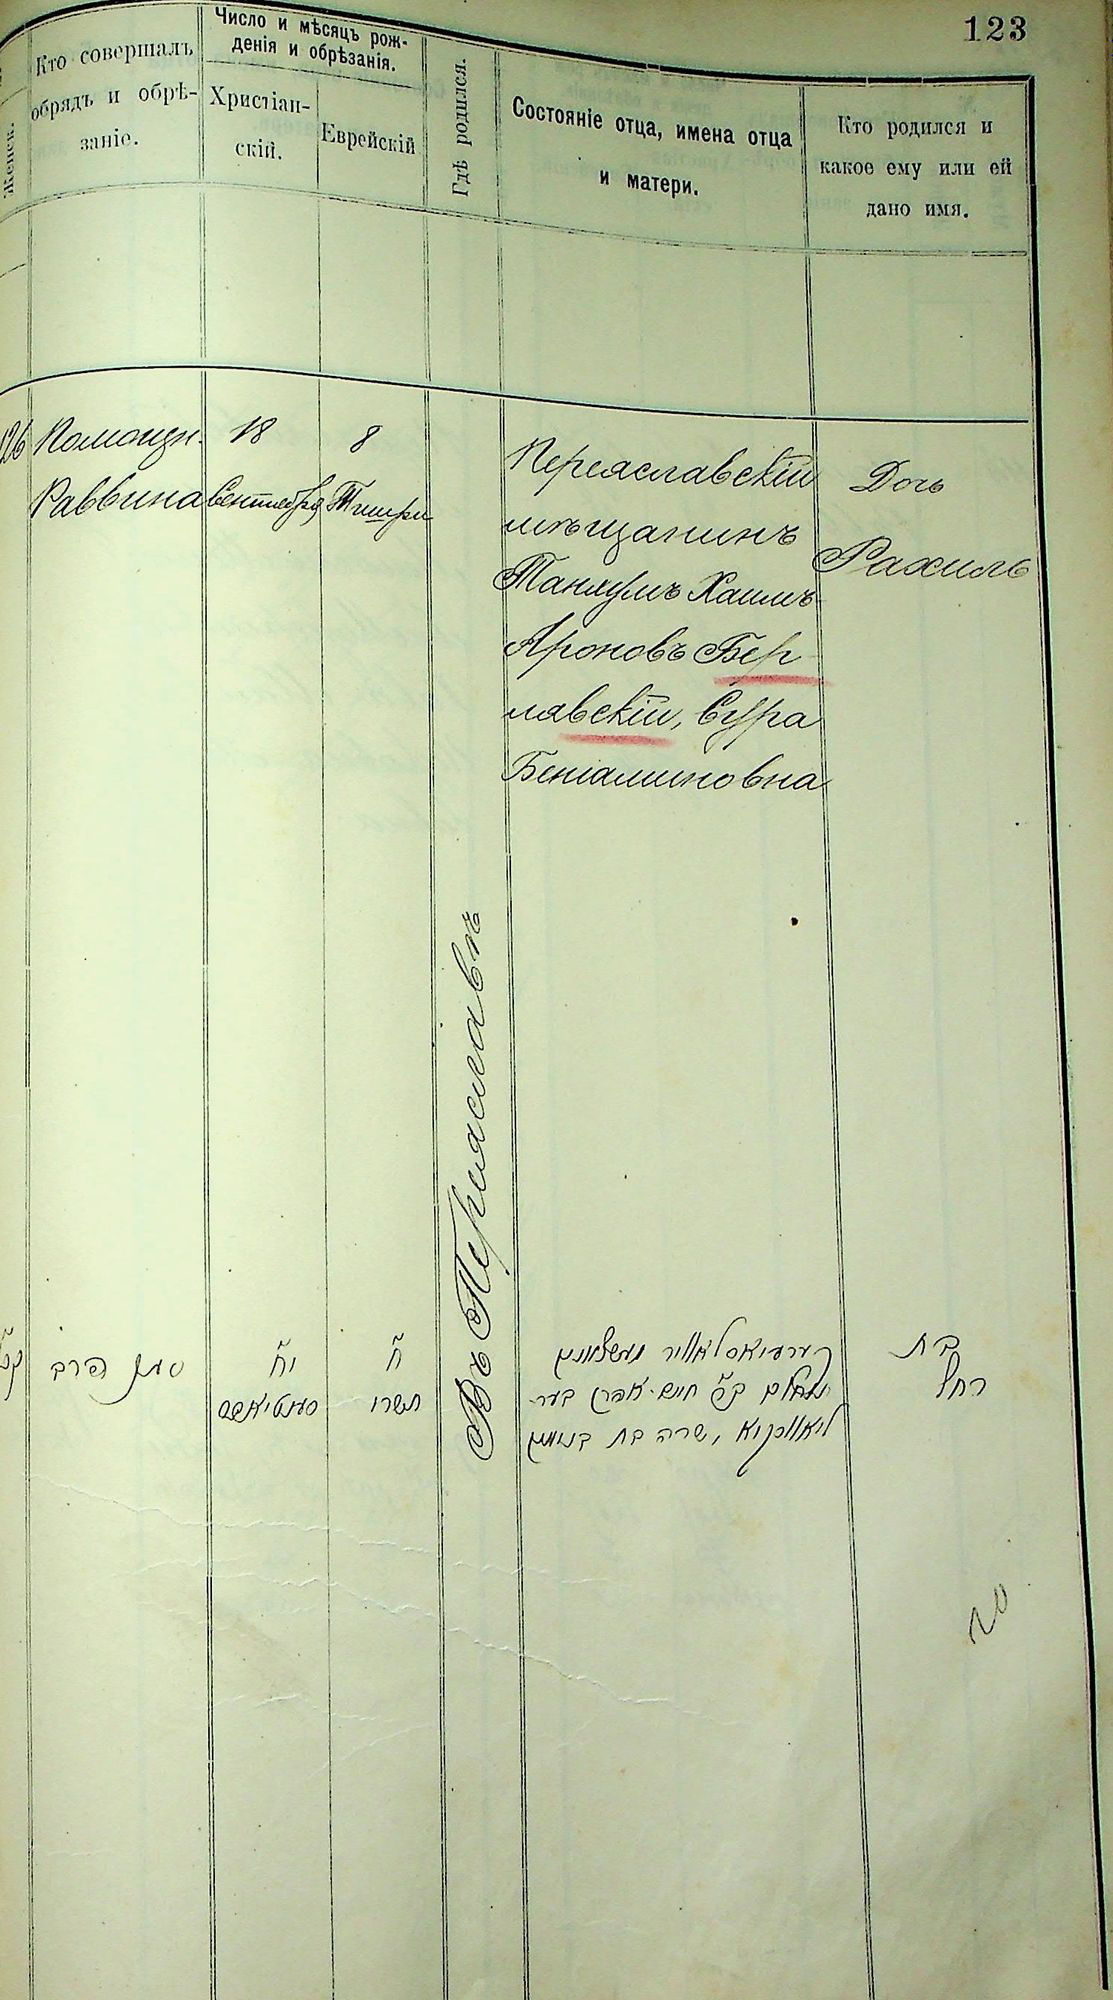 123
Женск.
Кто совершалъ
обрядъ и обрѣ-
заніе.
Число и мѣсяцъ рож-
денія и обрѣзанія.
Христіан-
скій.
Еврейскій
Гдѣ родился.
Состояніе отца, имена отца
и матери.
Кто родился и
какое ему или ей
дано имя.
126
Помощн.
Раввина
18
Сентября
8
Тишри
Въ Переяславѣ
Переяславскій
мѣщанинъ
Танхумъ Хаимъ
Ароновъ Бер-
лявскій, Сура
Беніаминовна
Дочь
Рахиль
הרב
יח
סענטיאבר
ח
תשרי
חיים אהרן בער
שרה בת בנימין
בת
רחל